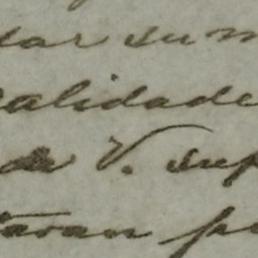 dar sum
calidade
de V. sup
taran pe